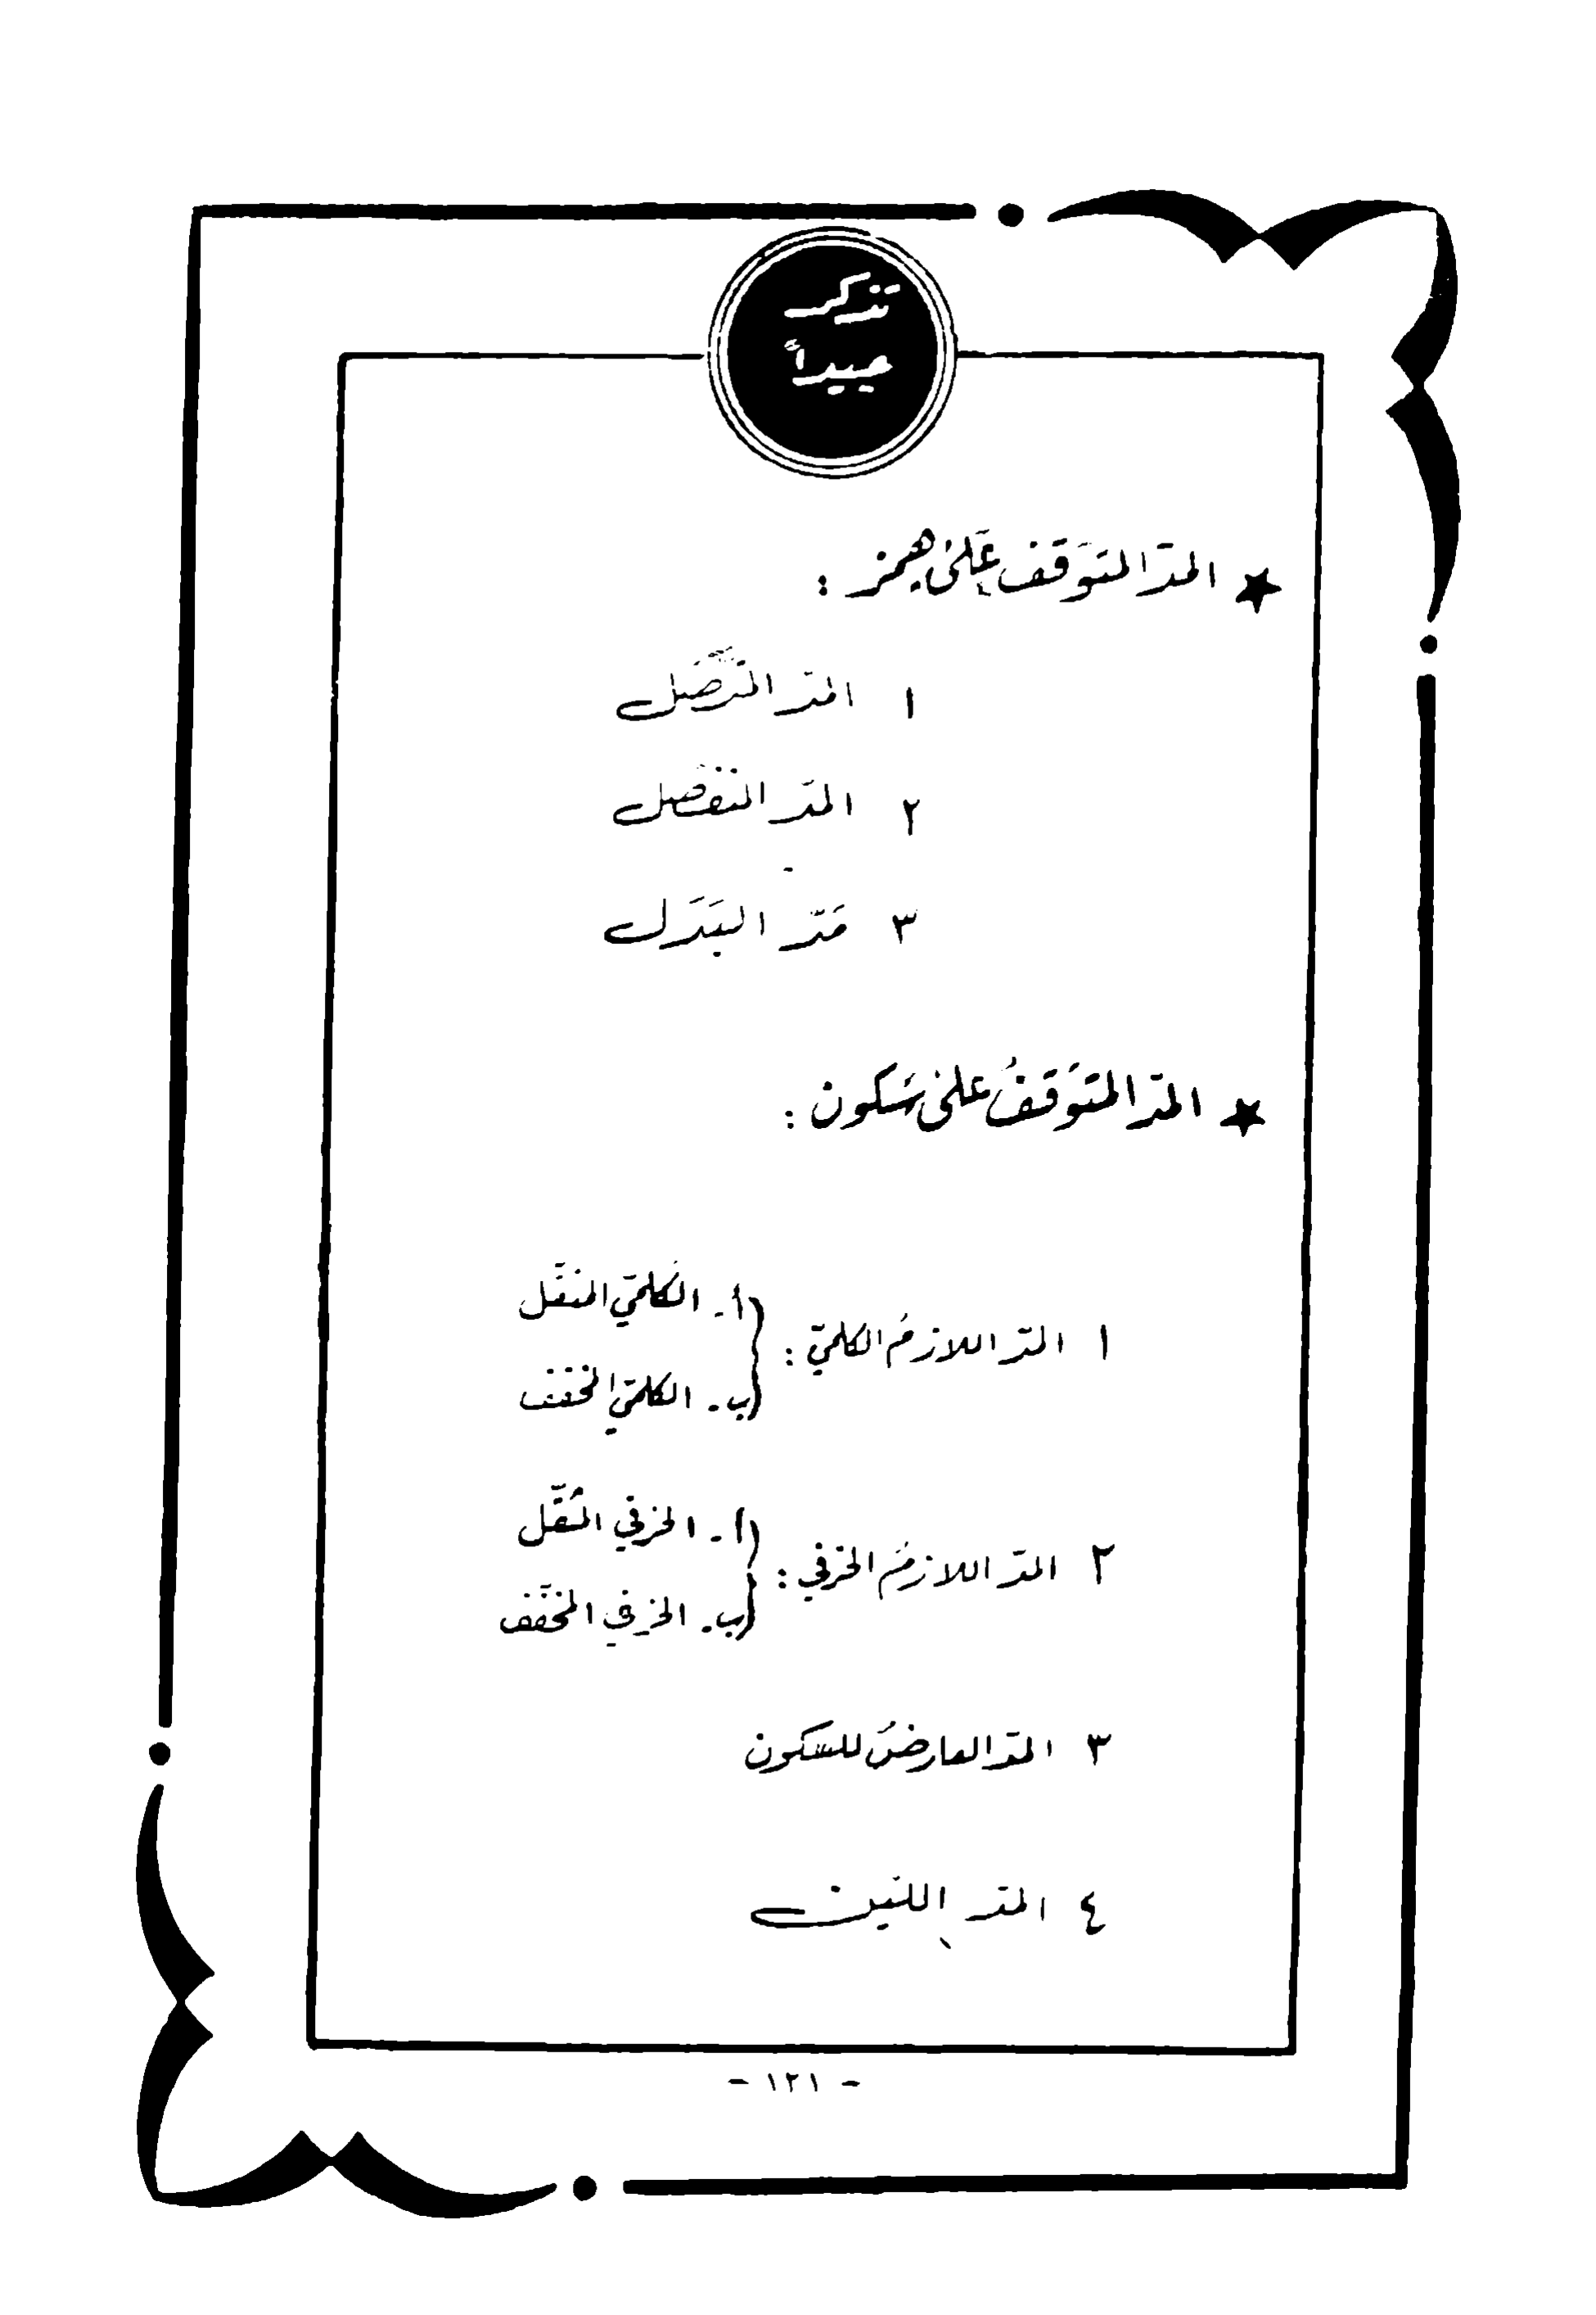 تذكر
جيداً
★ المدّ المتوَقف عَلىٰ همز :
١ المدّ المتَّصل
٢ المدّ المنفصل
٣ مَدّ البَدَل
★ المدّ المتوَقفُ علىٰ سُكون :
١ المدّ اللازمُ الكلميّ :
أ - الكلميّ المثقّل
ب - الكلميّ المخفف
٢ المدّ اللازمُ الحَرفي :
أ - الحرفي المثقّل
ب - الحرفي المخفّف
٣ المدّ العارضُ للسكون
٤ المدّ اللّين
- ١٢١ -